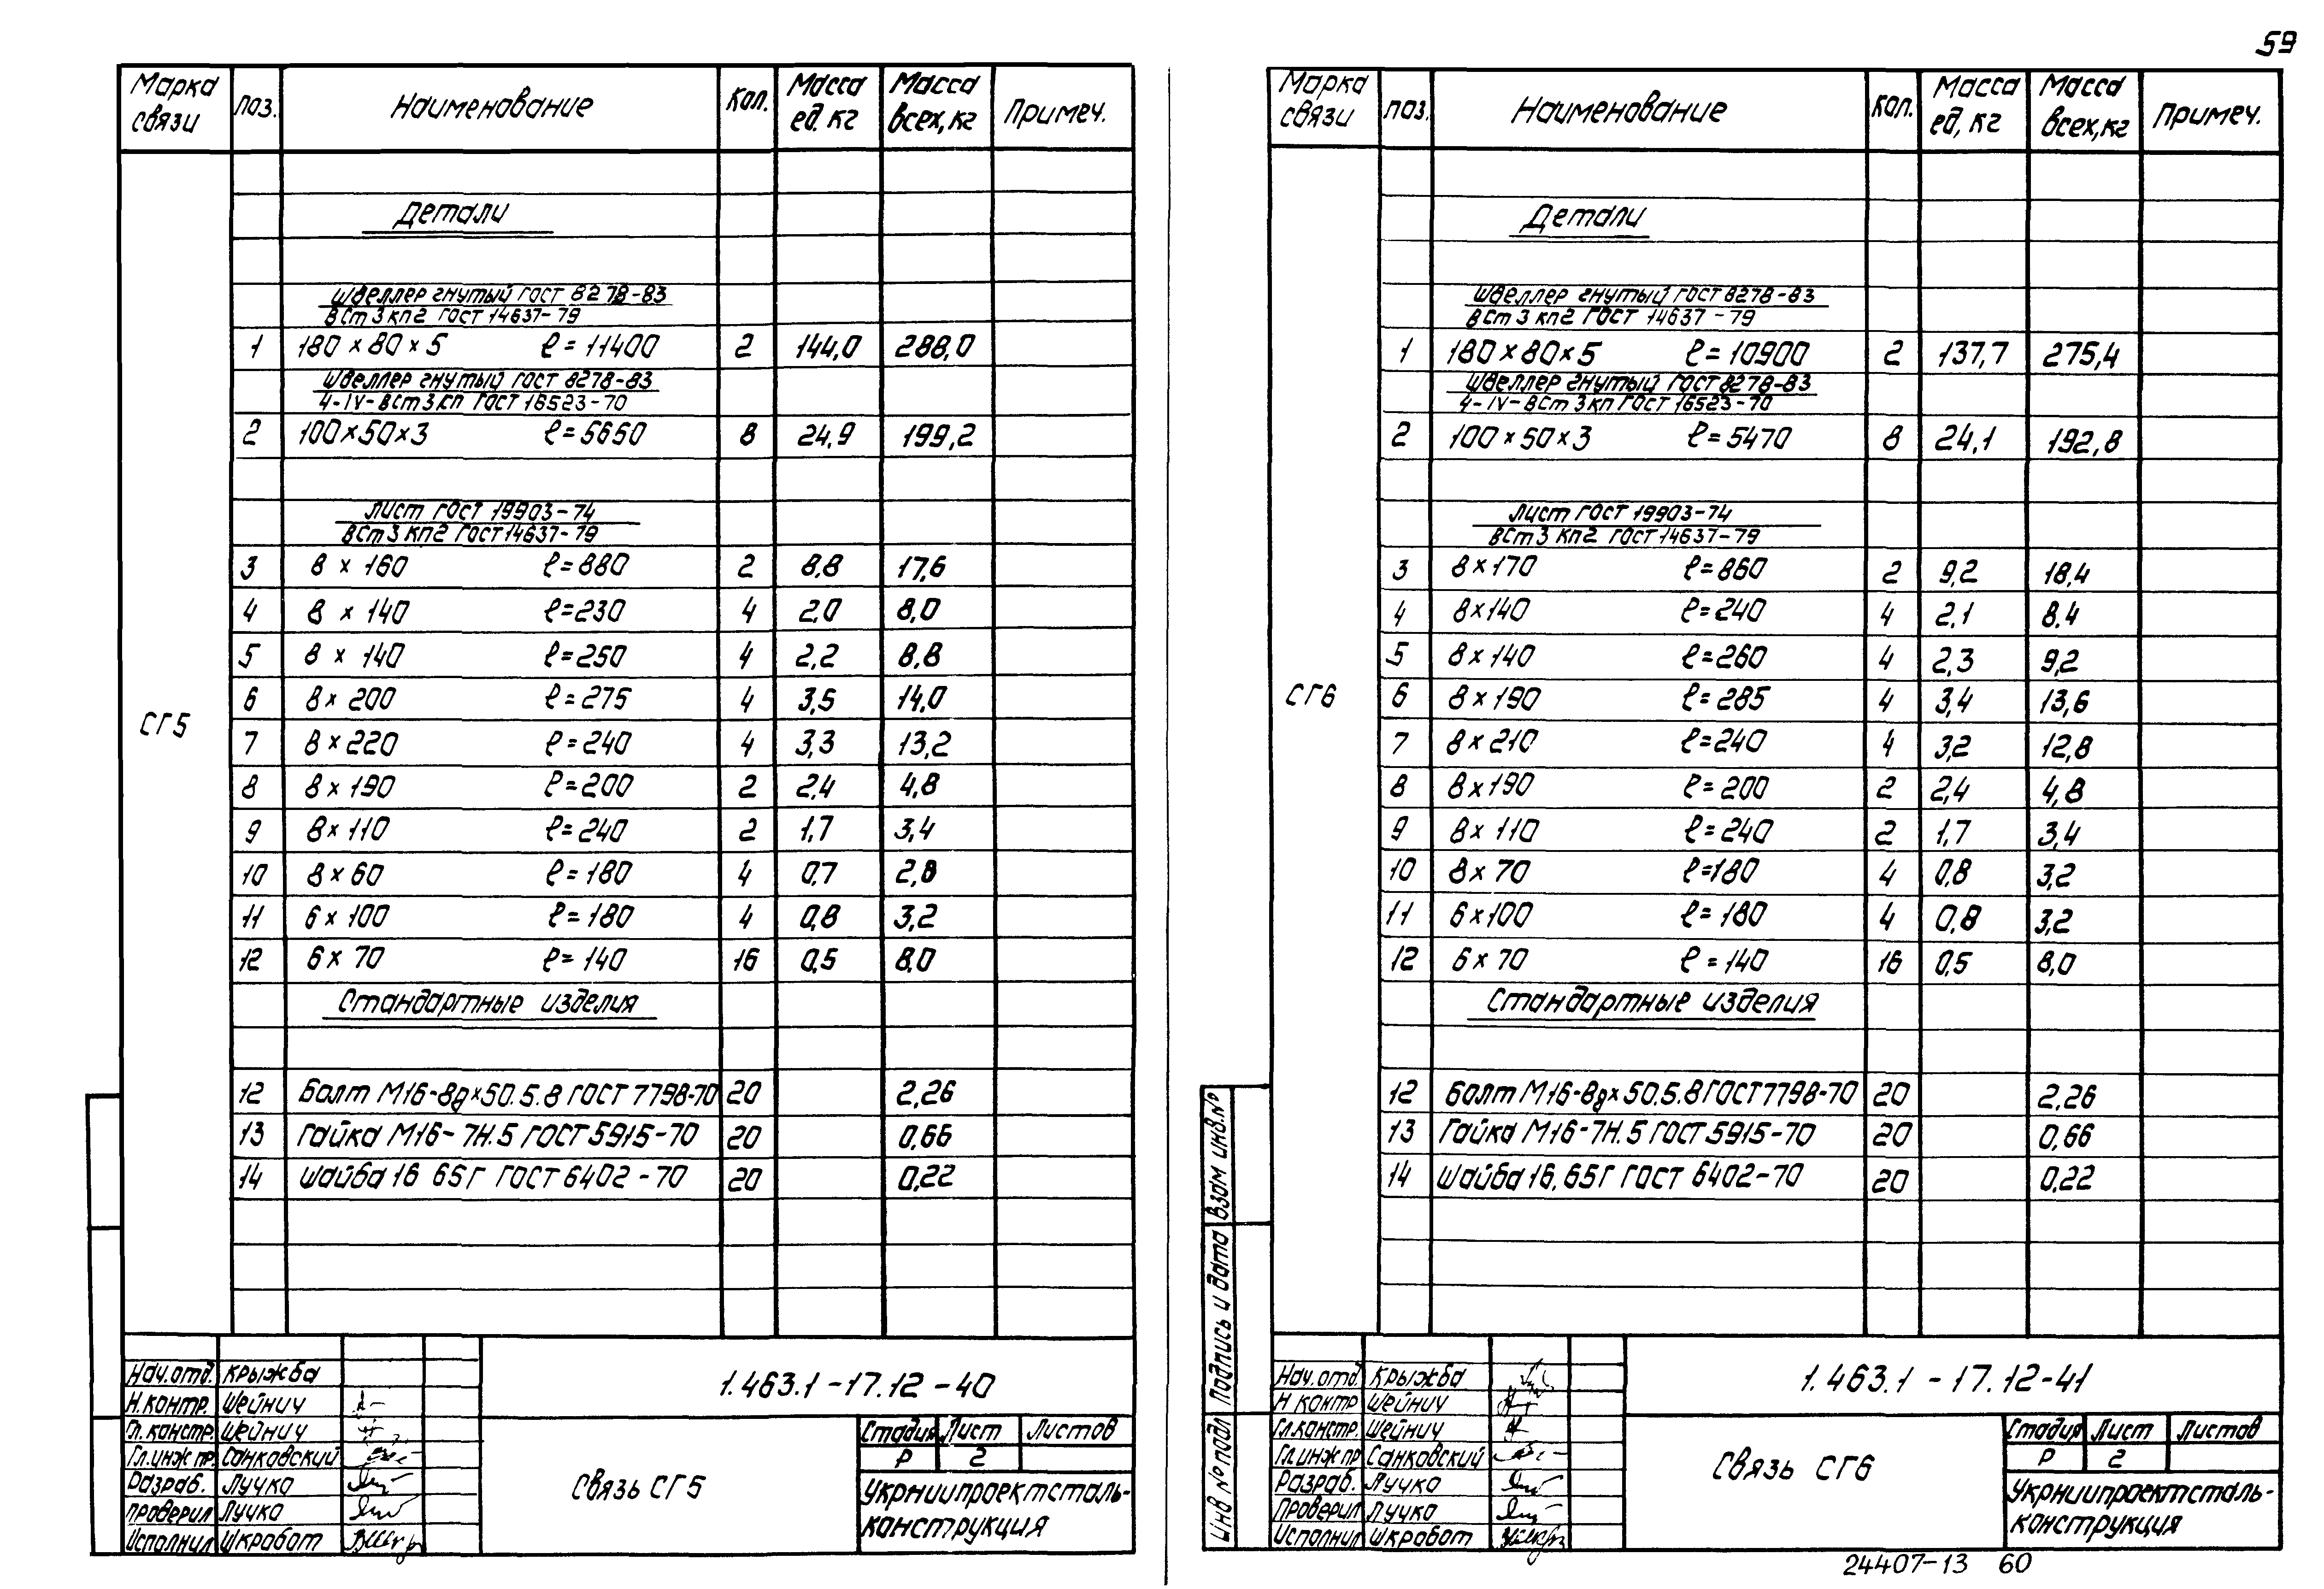 59
Марка связи | поз. | Наименование | Кол. | Масса ед. кг | Масса всех, кг | Примеч.
Детали
Швеллер гнутый ГОСТ 8278-83
ВСт3кп2 ГОСТ 14637-79
1 | 180×80×5 ℓ=11400 | 2 | 144,0 | 288,0
Швеллер гнутый ГОСТ 8278-83
4-IV-ВСт3кп ГОСТ 16523-70
2 | 100×50×3 ℓ=5650 | 8 | 24,9 | 199,2
Лист ГОСТ 19903-74
ВСт3кп2 ГОСТ 14637-79
3 | 8×160 ℓ=880 | 2 | 8,8 | 17,6
4 | 8×140 ℓ=230 | 4 | 2,0 | 8,0
5 | 8×140 ℓ=250 | 4 | 2,2 | 8,8
6 | 8×200 ℓ=275 | 4 | 3,5 | 14,0
СГ5
7 | 8×220 ℓ=240 | 4 | 3,3 | 13,2
8 | 8×190 ℓ=200 | 2 | 2,4 | 4,8
9 | 8×110 ℓ=240 | 2 | 1,7 | 3,4
10 | 8×60 ℓ=180 | 4 | 0,7 | 2,8
11 | 6×100 ℓ=180 | 4 | 0,8 | 3,2
12 | 6×70 ℓ=140 | 16 | 0,5 | 8,0
Стандартные изделия
12 | Болт М16-8g×50.5.8 ГОСТ 7798-70 | 20 | 2,26
13 | Гайка М16-7Н.5 ГОСТ 5915-70 | 20 | 0,66
14 | Шайба 16 65Г ГОСТ 6402-70 | 20 | 0,22
Нач.отд. Крыжба
Н.контр. Шейнич
Гл.констр. Шейнич
Гл.инж.пр. Санковский
Разраб. Лучко
Проверил Лучко
Исполнил Шкработ
1.463.1-17.12-40
Связь СГ5
Стадия | Лист | Листов
Р | 2
Укрниипроектсталь-
конструкция
Марка связи | поз. | Наименование | Кол. | Масса ед, кг | Масса всех, кг | Примеч.
Детали
Швеллер гнутый ГОСТ 8278-83
ВСт3кп2 ГОСТ 14637-79
1 | 180×80×5 ℓ=10900 | 2 | 137,7 | 275,4
Швеллер гнутый ГОСТ 8278-83
4-IV-ВСт3кп ГОСТ 16523-70
2 | 100×50×3 ℓ=5470 | 8 | 24,1 | 192,8
Лист ГОСТ 19903-74
ВСт3кп2 ГОСТ 14637-79
3 | 8×170 ℓ=860 | 2 | 9,2 | 18,4
4 | 8×140 ℓ=240 | 4 | 2,1 | 8,4
5 | 8×140 ℓ=260 | 4 | 2,3 | 9,2
СГ6
6 | 8×190 ℓ=285 | 4 | 3,4 | 13,6
7 | 8×210 ℓ=240 | 4 | 3,2 | 12,8
8 | 8×190 ℓ=200 | 2 | 2,4 | 4,8
9 | 8×110 ℓ=240 | 2 | 1,7 | 3,4
10 | 8×70 ℓ=180 | 4 | 0,8 | 3,2
11 | 6×100 ℓ=180 | 4 | 0,8 | 3,2
12 | 6×70 ℓ=140 | 16 | 0,5 | 8,0
Стандартные изделия
12 | Болт М16-8g×50.5.8 ГОСТ 7798-70 | 20 | 2,26
13 | Гайка М16-7Н.5 ГОСТ 5915-70 | 20 | 0,66
14 | Шайба 16.65Г ГОСТ 6402-70 | 20 | 0,22
Инв № подл Подпись и дата Взам инв.№
Нач.отд. Крыжба
Н контр Шейнич
Гл.констр. Шейнич
Гл.инж пр Санковский
Разраб. Лучко
Проверил Лучко
Исполнил Шкработ
1.463.1-17.12-41
Связь СГ6
Стадия | Лист | Листов
Р | 2
Укрниипроектсталь-
конструкция
24407-13 60